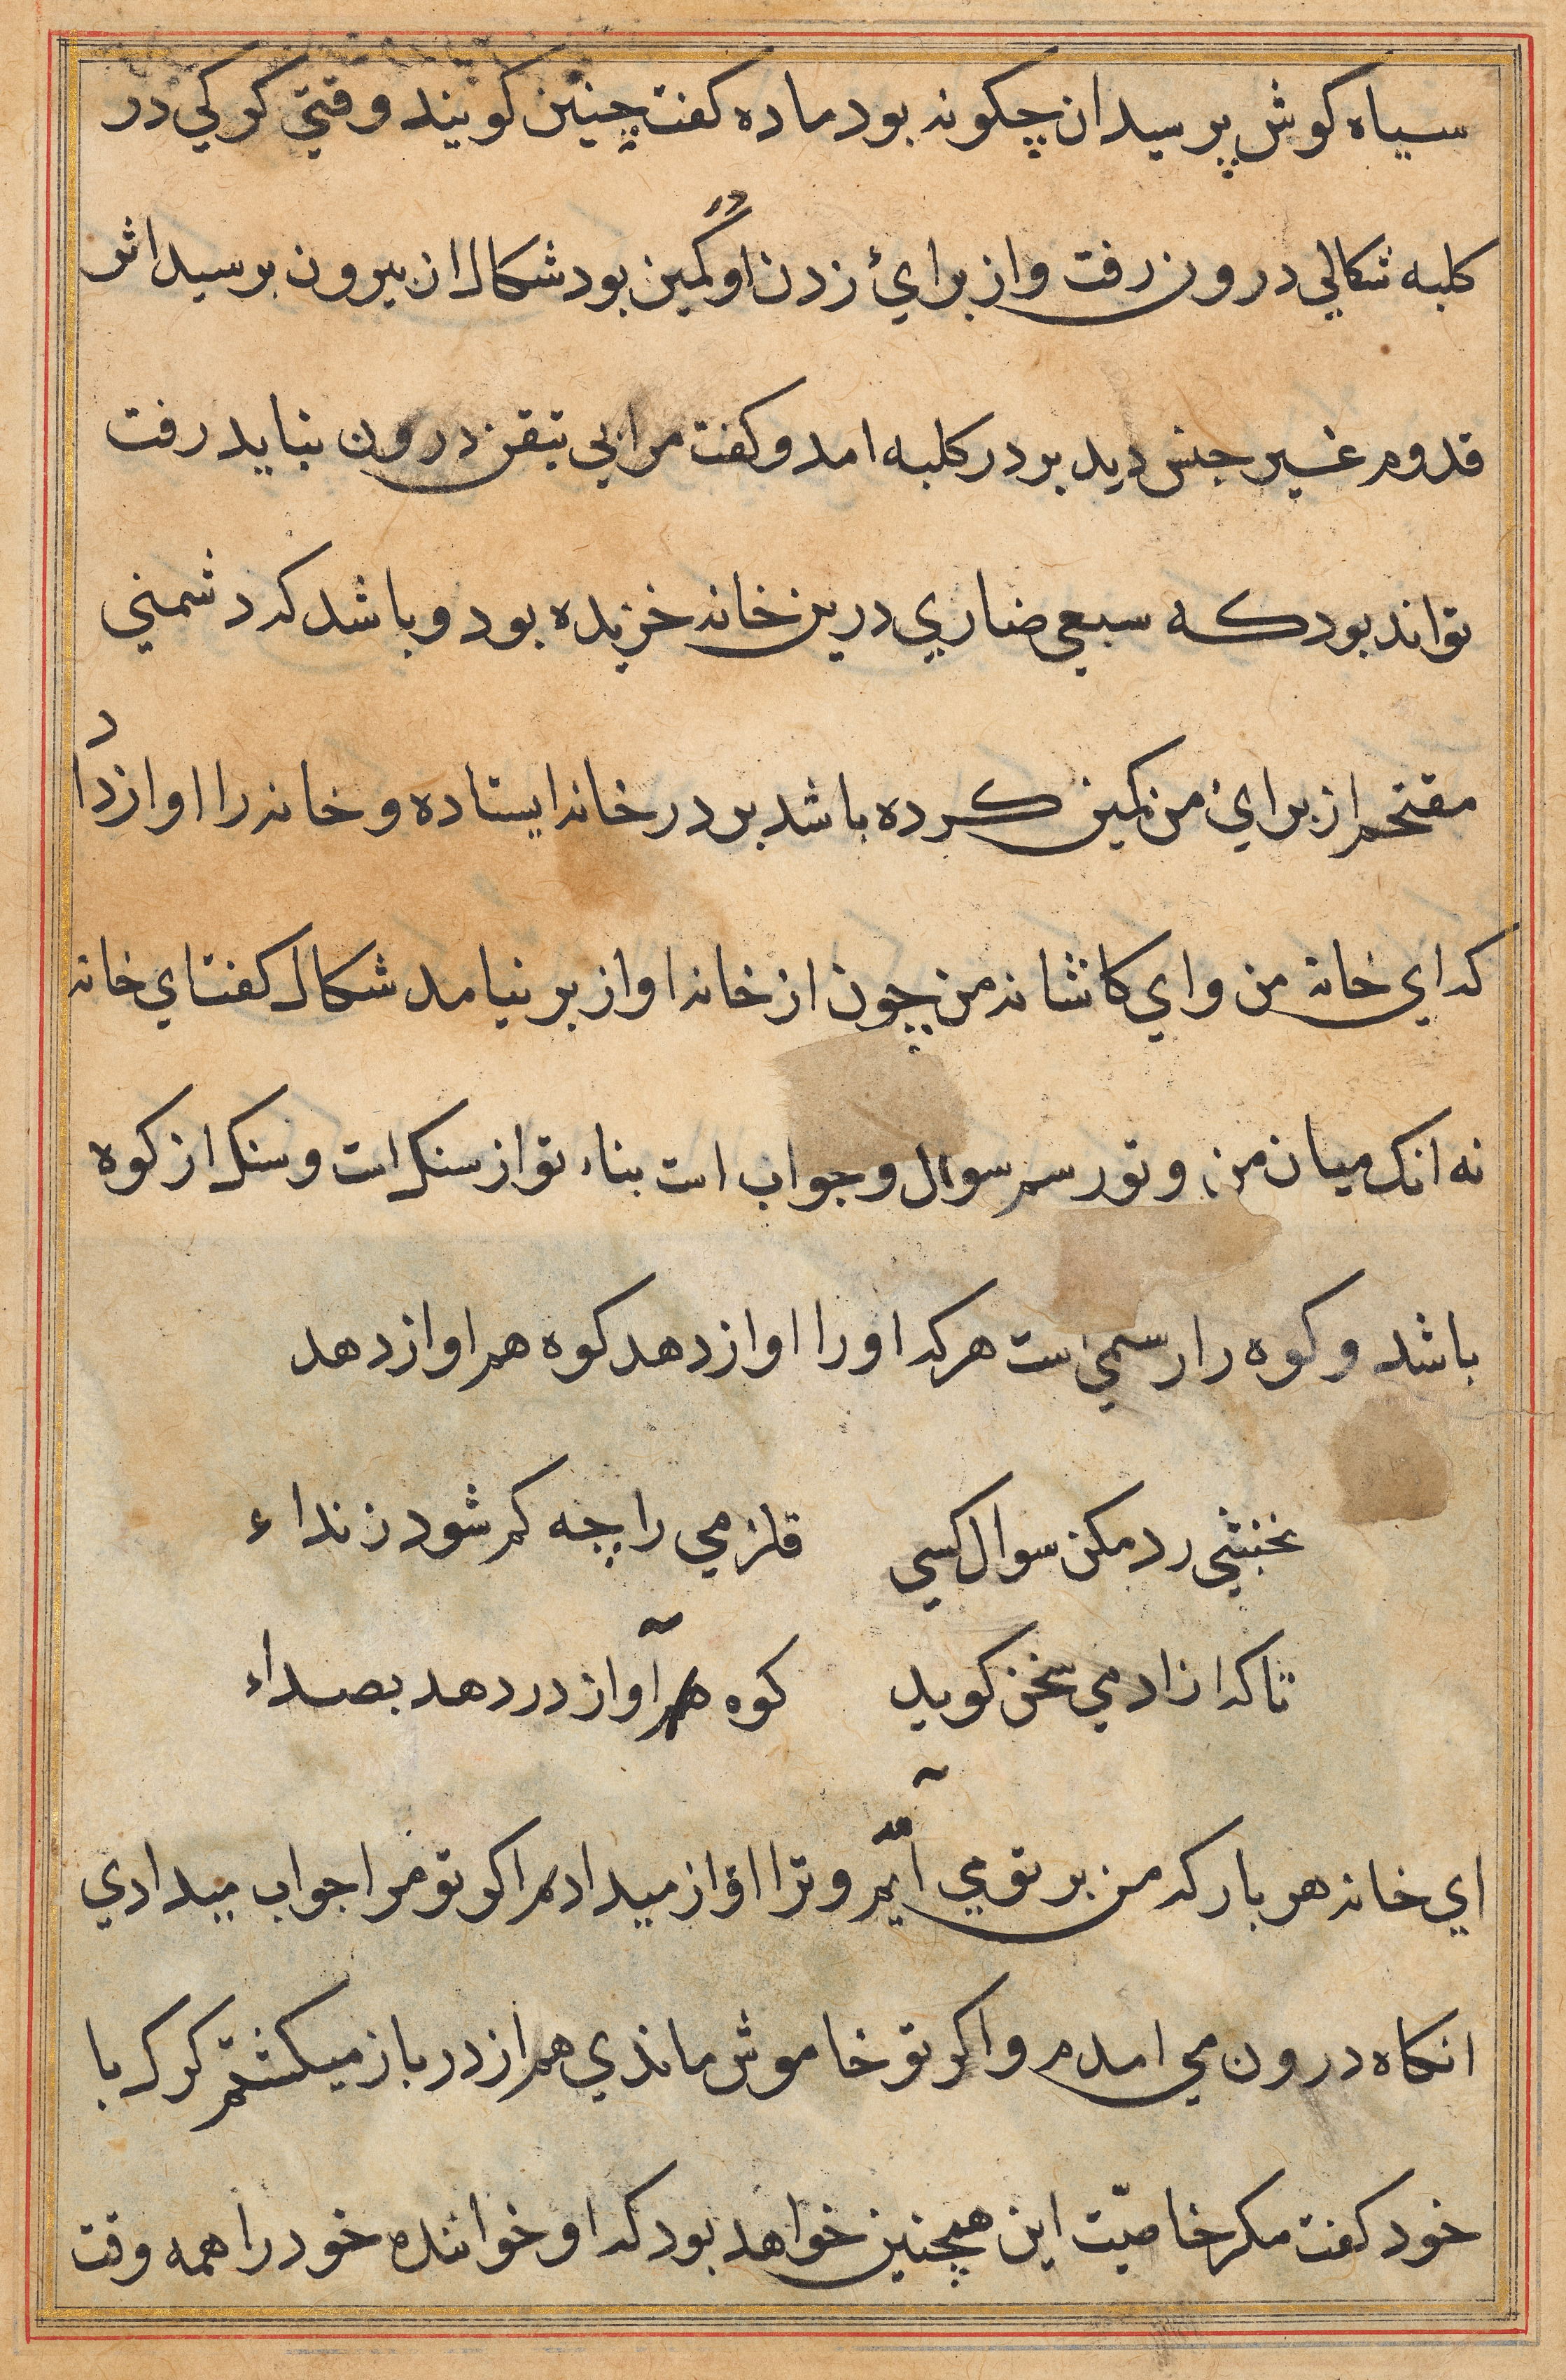 سیاه کوش پرسید ان چکونه بود ماده کفت چنین کویند وقتی کرکی در
کلبه شکالی درون رفت و از برائ زدن او در کمین بود شکال از بیرون بر سید اثر
قدوم غیر جنس دید بر در کلبه امد و کفت مرا بی تیقن درون نباید رفت
تواند بود که سبعی ضاری درین خانه خزیده بود و باشد که دشمنی
مقتحم از برای من کمین کرده باشد بر در خانه ایستاده و خانه را اواز داد
که ای خانه من و ای کاشانه من چون از خانه اواز بر نیامد شکال کفت ای خانه
نه انک میان من و تو رسم سوال و جواب است بناء تو از سنک است و سنک از کوه
باشد و کوه را رسمی ست هر که او را اواز دهد کوه هم اواز دهد
نخشبی رد مکن سوال کسی قلزمی را چه کم شود ز نداء
تا که از ادمی سخن کوید کوه هم آواز در دهد بصداء
ای خانه هر بار که من بر تو می آیم و ترا اواز میدادم اکر تو مرا جواب میدادی
انکاه درون می امدم و اکر تو خاموش ماندی هم از در باز میکشتم کرک با
خود کفت مکر خاصیّت این همچنین خواهد بود که او خواننده خود را همه وقت